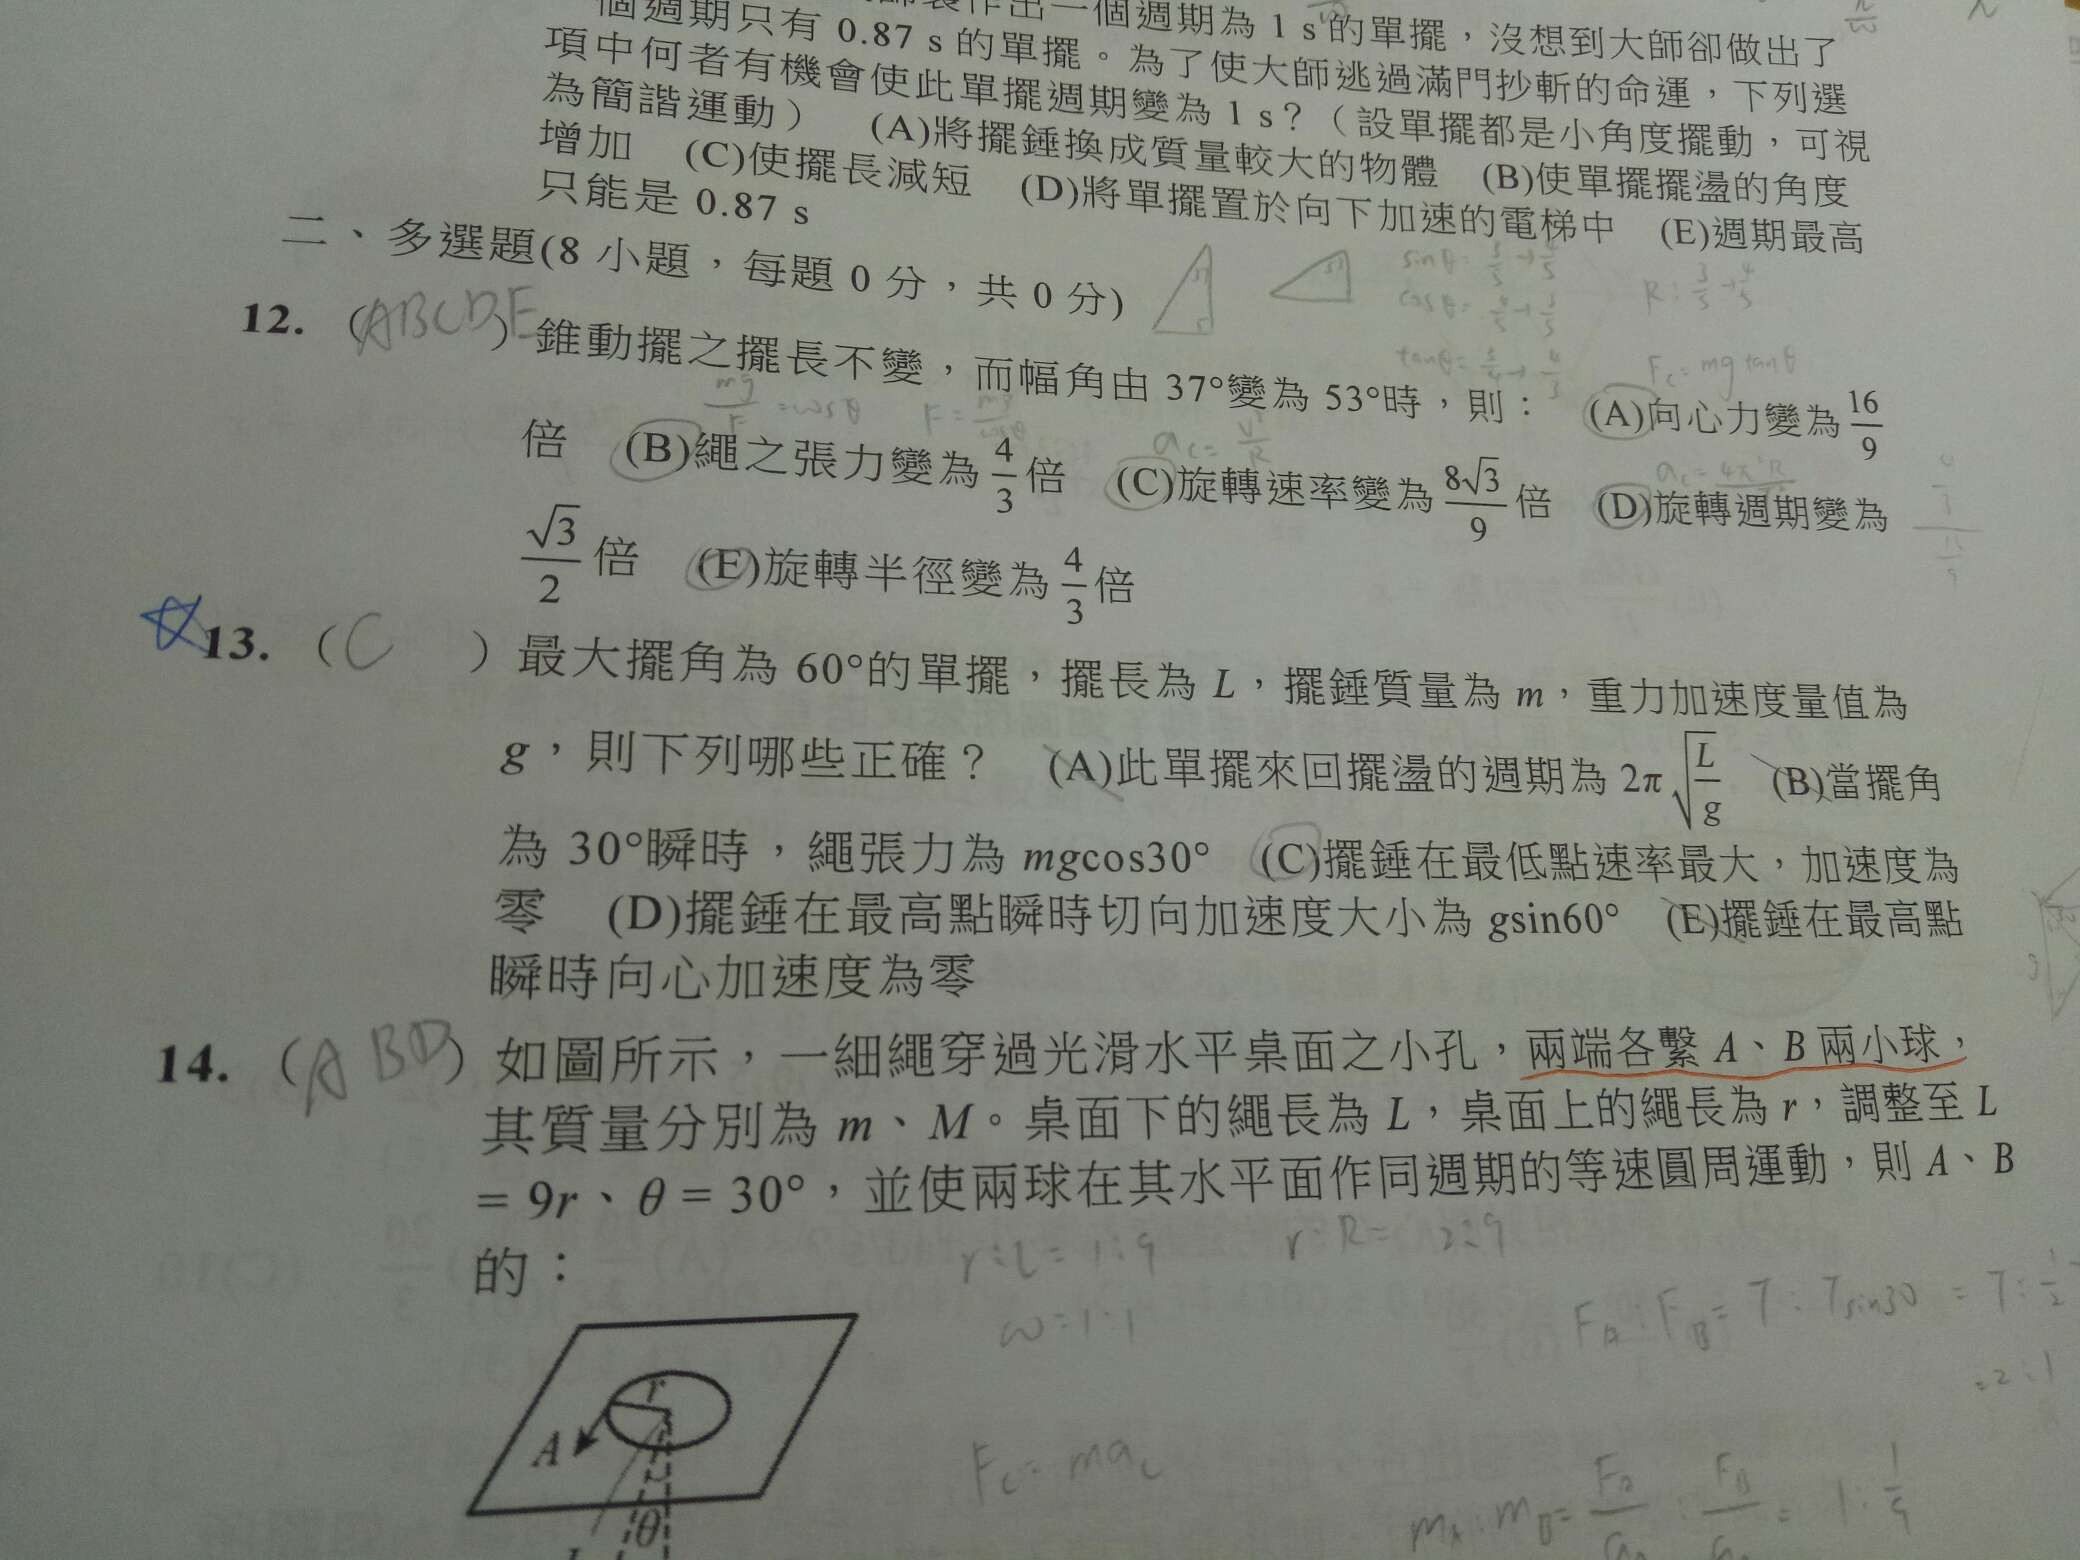 個週期只有 0.87 s 的單擺。為了使大師逃過滿門抄斬的命運，下列選
製作出一個週期為 1 s 的單擺，沒想到大師卻做出了
項中何者有機會使此單擺週期變為 1 s？（設單擺都是小角度擺動，可視
為簡諧運動） (A)將擺錘換成質量較大的物體 (B)使單擺擺盪的角度
增加 (C)使擺長減短 (D)將單擺置於向下加速的電梯中 (E)週期最高
只能是 0.87 s
二、多選題(8 小題，每題 0 分，共 0 分)
sinθ = 3/5 → 4/5
cosθ = 4/5 → 3/5
tanθ = 3/4 → 4/3
R : 3/5 → 4/5
Fc = mg tanθ
12. (ABCDE) 錐動擺之擺長不變，而幅角由 37°變為 53°時，則： (A)向心力變為 16/9
mg/F = cosθ
ac = V²/R
倍 (B)繩之張力變為 4/3 倍 (C)旋轉速率變為 8√3/9 倍 (D)旋轉週期變為
√3/2 倍 (E)旋轉半徑變為 4/3 倍
13. (C) 最大擺角為 60°的單擺，擺長為 L，擺錘質量為 m，重力加速度量值為
g，則下列哪些正確？ (A)此單擺來回擺盪的週期為 2π√(L/g) (B)當擺角
為 30°瞬時，繩張力為 mgcos30° (C)擺錘在最低點速率最大，加速度為
零 (D)擺錘在最高點瞬時切向加速度大小為 gsin60° (E)擺錘在最高點
瞬時向心加速度為零
14. (ABD) 如圖所示，一細繩穿過光滑水平桌面之小孔，兩端各繫 A、B 兩小球，
其質量分別為 m、M。桌面下的繩長為 L，桌面上的繩長為 r，調整至 L
= 9r、θ = 30°，並使兩球在其水平面作同週期的等速圓周運動，則 A、B
的：
r : L = 1 : 9
r : R = 2 : 9
ω = 1 : 1
FA : FB = T : Tsin30 = T : 1/2
= 2 : 1
r
A
θ
Fc = mac
mA : mB =